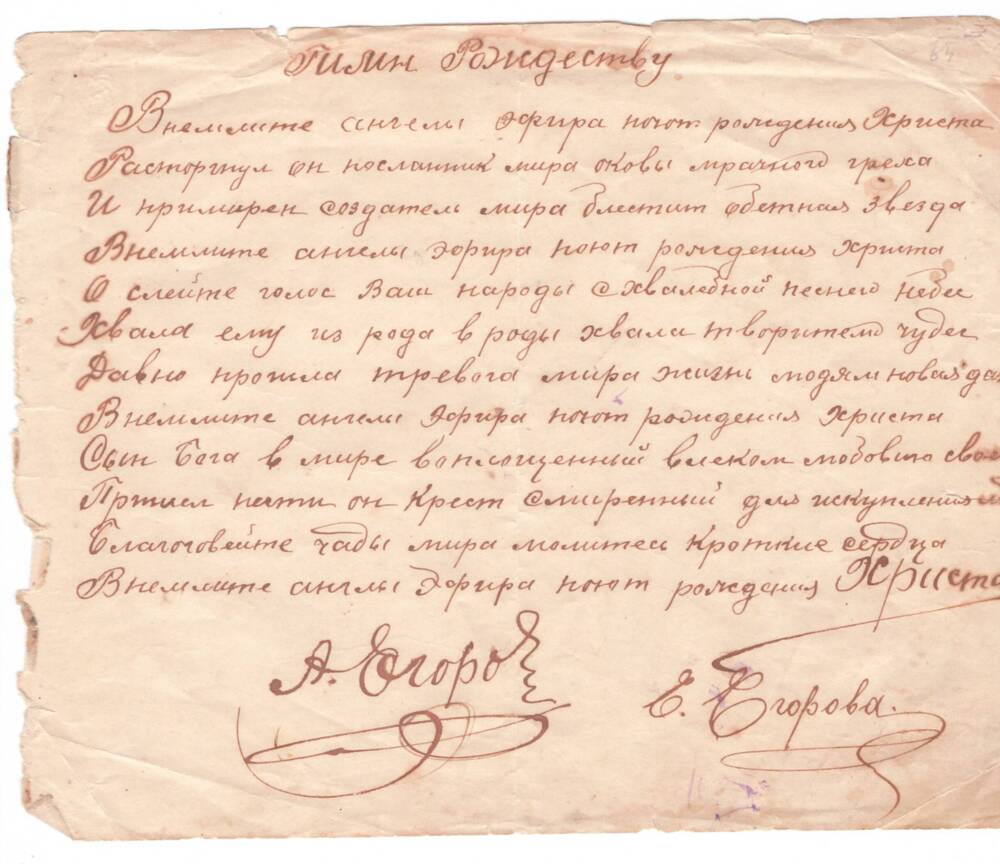 Гимн Рождеству
Внемлите ангелы эфира поют рождения Христа
Расторгнул он посланник мира оковы мрачного греха
И примирен создатель мира блестит обетная звезда
Внемлите ангелы эфира поют рождения христа
О слейте голос Ваш народы с хвалебной песнею небес
Хвала ему из рода в роды хвала творителю чудес
Давно прошла тревога мира жизнь людям новая да
Внемлите ангелы эфира поют рождения христа
Сын Бога в мире воплощенный влеком любовию сво
Пришел нести он Крест смиренный для искупления
Благоговейте чады мира молитесь Кроткие сердца
Внемлите англы эфира поют рождения Христа
А. Егоров
Е. Егорова.
64